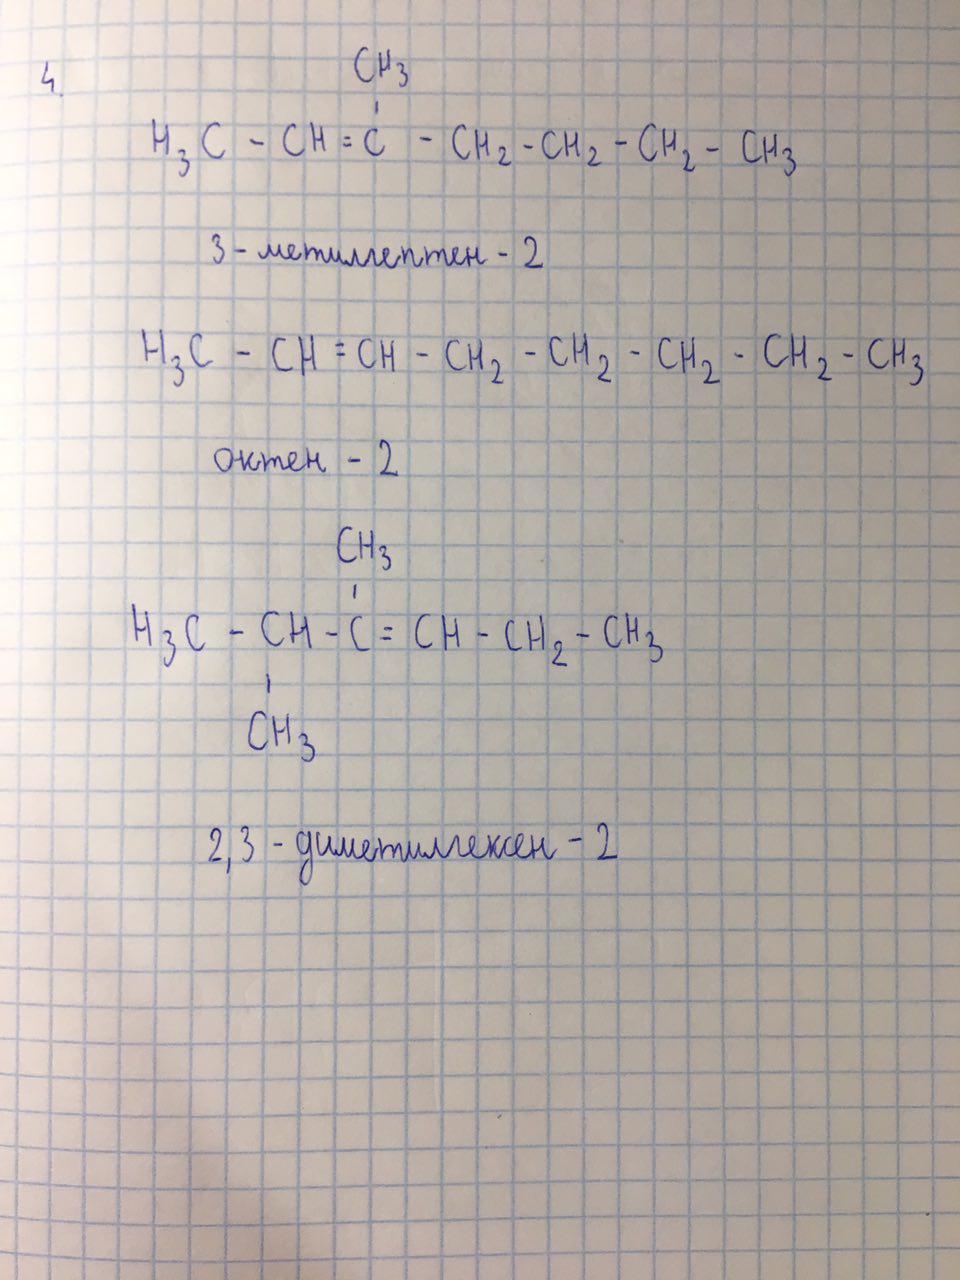 4.
CH₃
H₃C - CH = C - CH₂ - CH₂ - CH₂ - CH₃
3 - метилгептен - 2
H₃C - CH = CH - CH₂ - CH₂ - CH₂ - CH₂ - CH₃
октен - 2
CH₃
H₃C - CH - C = CH - CH₂ - CH₃
CH₃
2,3 - диметилгексен - 2